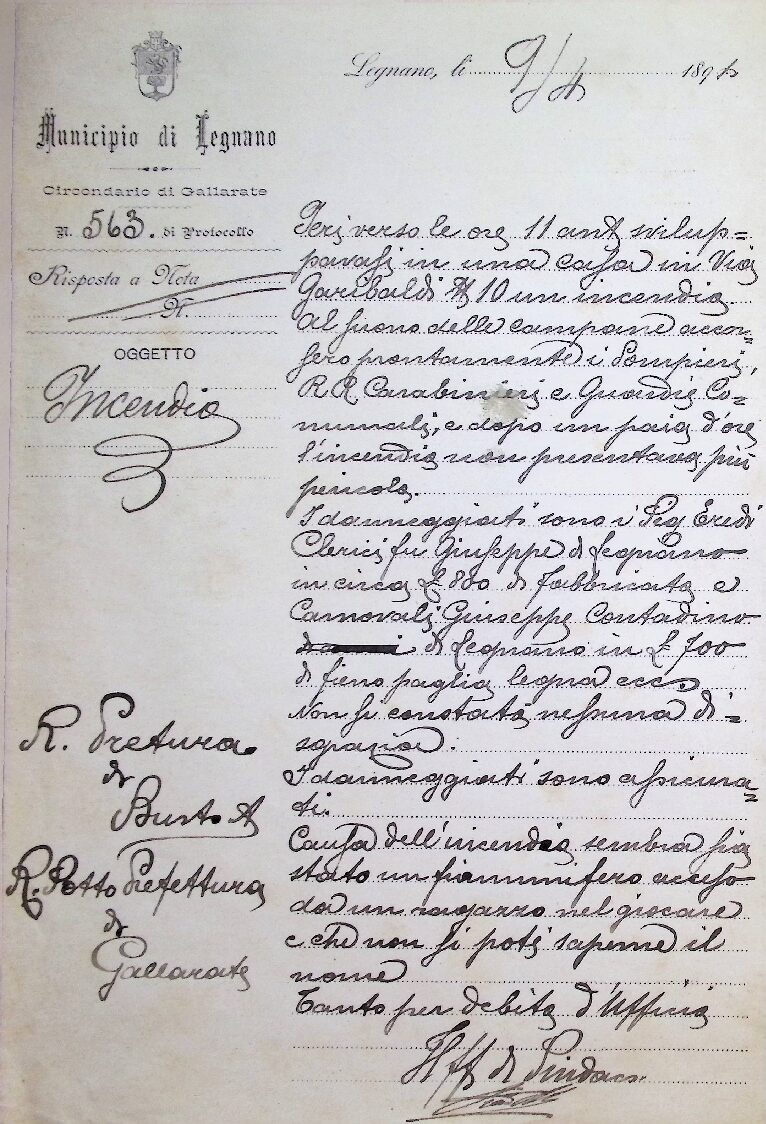 Legnano, lì 9/4 189
Municipio di Legnano
Circondario di Gallarate
N. 563. di Protocollo
Risposta a Nota
N.
OGGETTO
Incendio
Ieri verso le ore 11 ant svilup=
pavasi in una casa in Via
Garibaldi N 10 un incendio.
Al suono delle campane accor=
sero prontamente i Pompieri,
R R Carabinieri e Guardie Co=
munali, e dopo un paio d'ore
l'incendio non presentava più
pericolo.
I danneggiati sono i Sig Eredi
Clerici fu Giuseppe di Legnano
in circa £ 800 di fabbricato e
Carnovali Giuseppe Contadino
di Legnano in £ 700
di fieno paglia legna ecc
Non si constatò nessuna di=
sgrazia.
I danneggiati sono assicura=
ti.
Causa dell'incendio sembra sia
stato un fiammifero acceso
da un ragazzo nel giocare
e che non si potè saperne il
nome
Tanto per debito d'Ufficio
Il ff di Sindaco
R. Pretura
di
Busto A
R. Sotto Prefettura
di
Gallarate